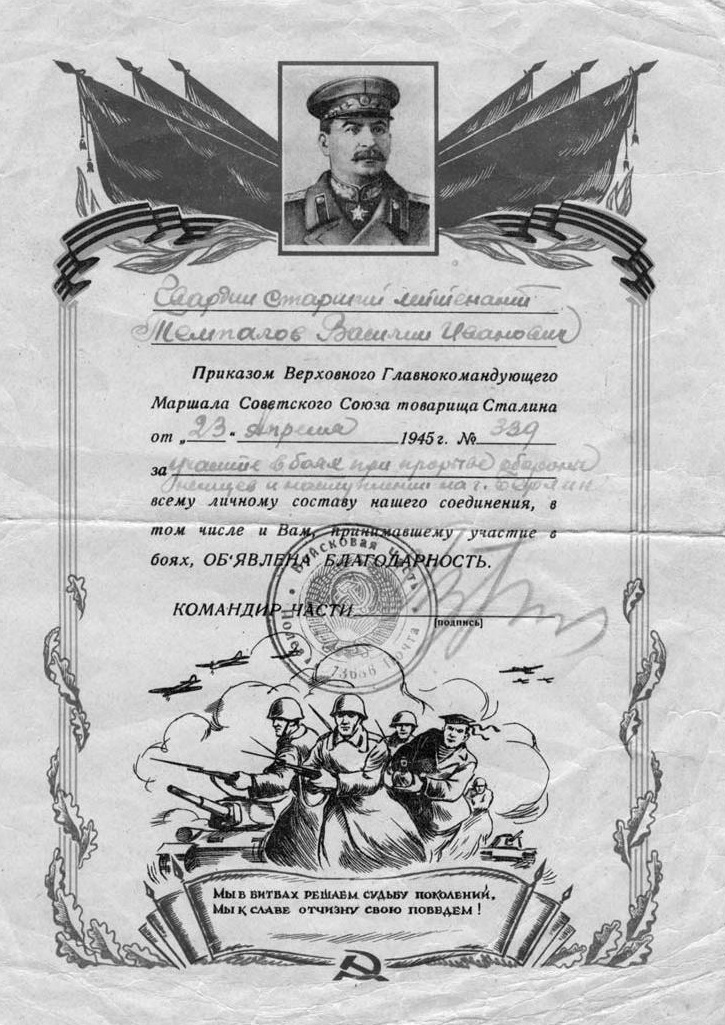 Гвардии старший лейтенант
Темпалов Василий Иванович
Приказом Верховного Главнокомандующего
Маршала Советского Союза товарища Сталина
от „23“ апреля 1945 г. № 339
за участие в боях при прорыве обороны
немцев и наступлении на г. Берлин
всему личному составу нашего соединения, в
том числе и Вам, принимавшему участие в
боях, ОБ‘ЯВЛЕНА БЛАГОДАРНОСТЬ.
КОМАНДИР ЧАСТИ
[подпись]
Войсковая часть
Полевая Почта
73666
МЫ В БИТВАХ РЕШАЕМ СУДЬБУ ПОКОЛЕНИЙ,
МЫ К СЛАВЕ ОТЧИЗНУ СВОЮ ПОВЕДЕМ !